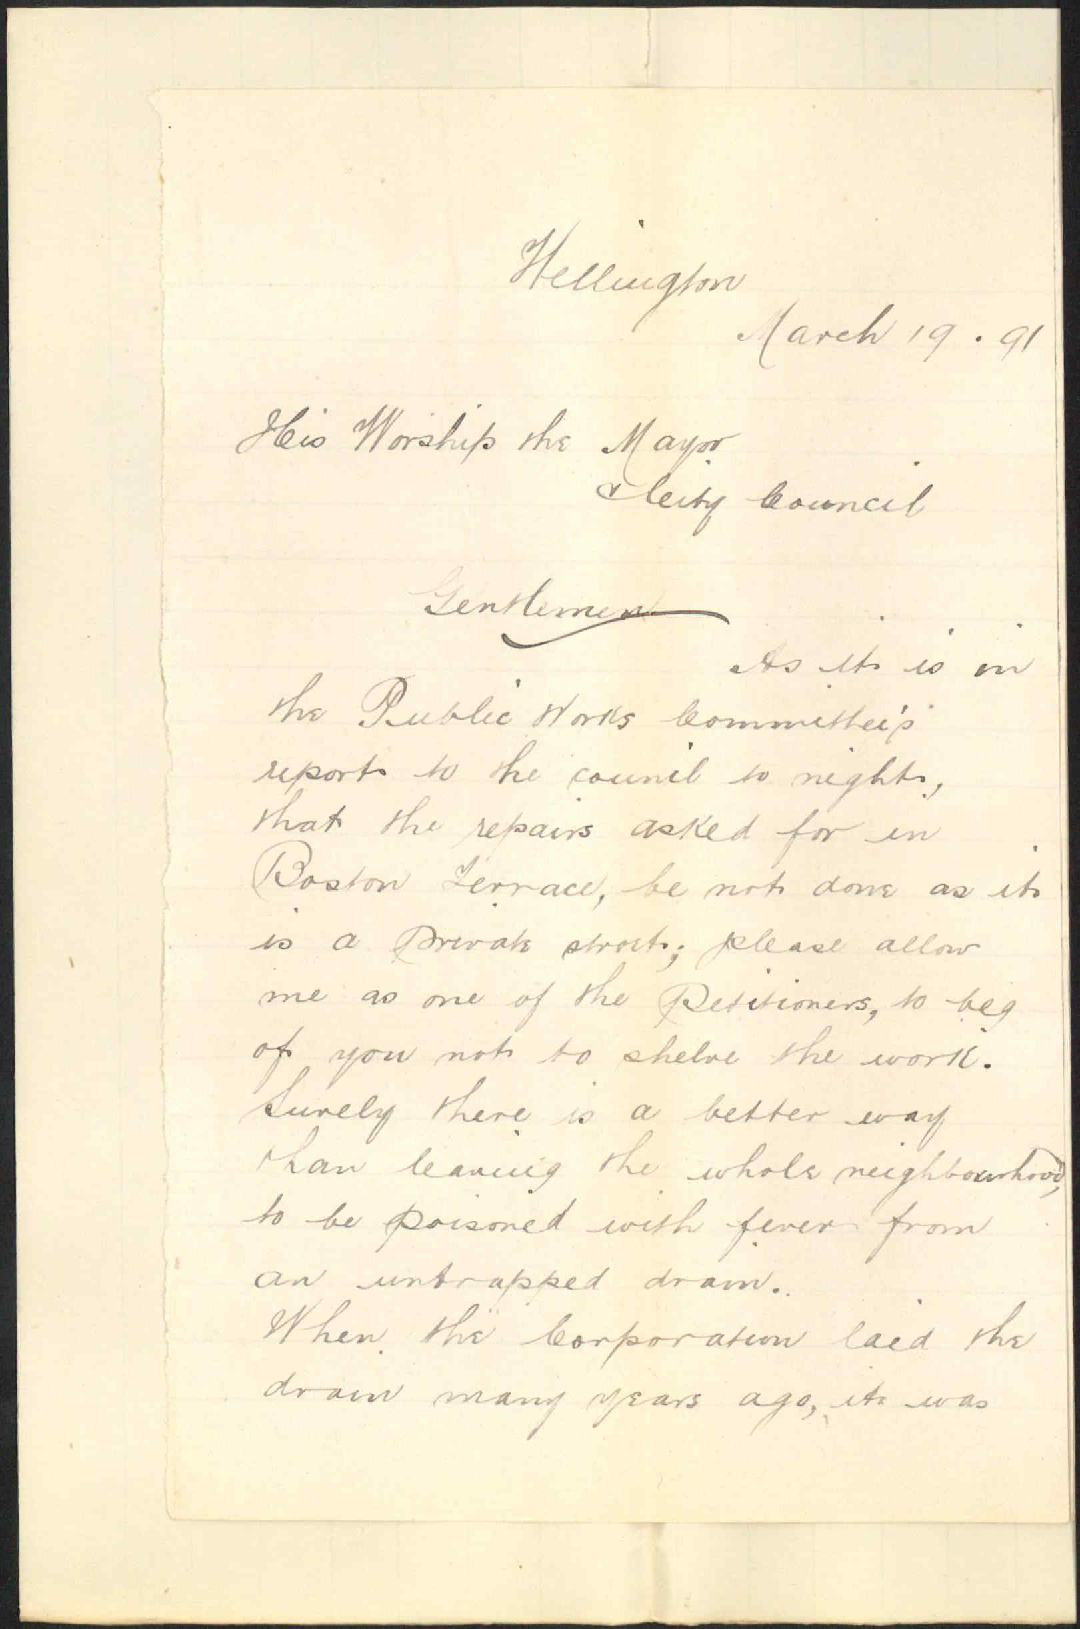 Wellington
March 19 . 91
His Worship the Mayor
& City Council
Gentlemen
As it is in
the Public Works Committee's
report to the council to night,
that the repairs asked for in
Boston Terrace, be not done as it
is a Private street; please allow
me as one of the Petitioners, to beg
of you not to shelve the work.
Surely there is a better way
than leaving the whole neighbourhood,
to be poisoned with fever from
an untrapped drain.
When the Corporation laid the
drain many years ago, it was